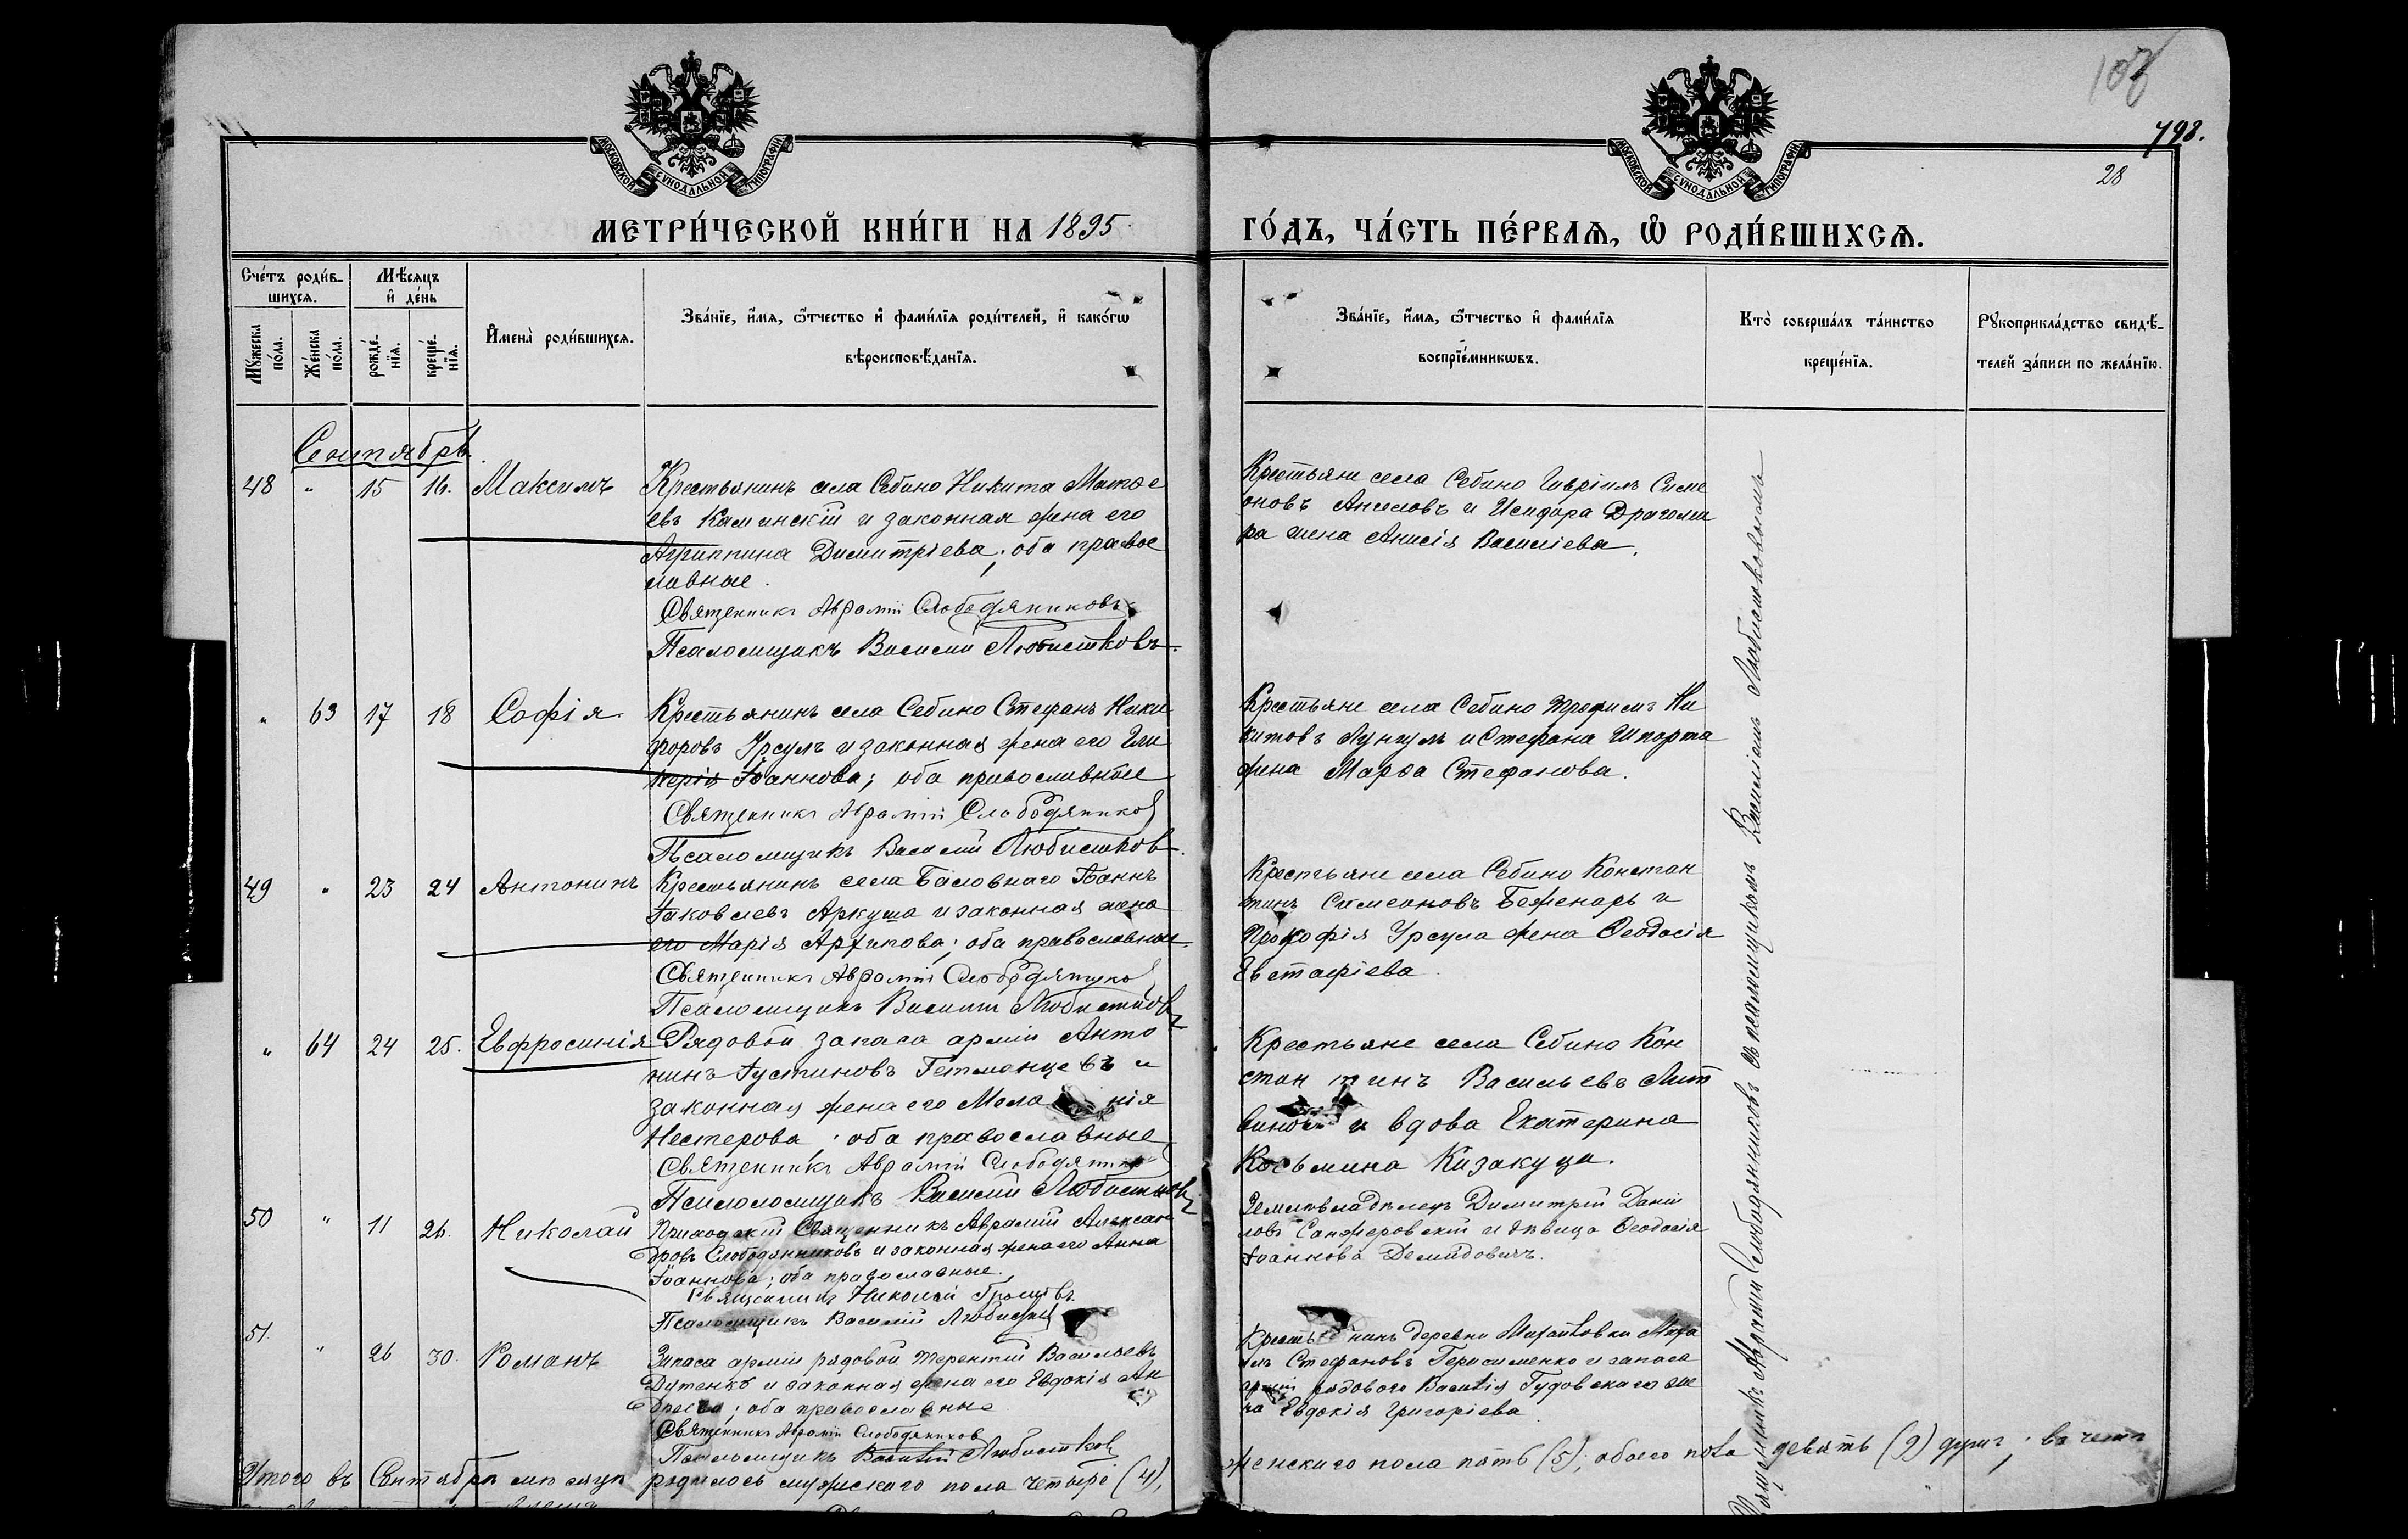 103
798.
28
МОСКОВСКОЙ СѴНОДАЛЬНОЙ ТИПОГРАФІИ
МОСКОВСКОЙ СѴНОДАЛЬНОЙ ТИПОГРАФІИ
МЕТРИ́ЧЕСКОЙ КНИ́ГИ НА 1895
ГО́ДЪ, ЧА́СТЬ ПЕ́РВАѦ, Ѡ҆ РОДИ́ВШИХСѦ.
Сче́тъ роди́в-
шихсѧ.
Мѣ́сѧцъ
и҆ де́нь
Мꙋ́жеска
по́ла.
Же́нска
по́ла.
рожде́-
нїѧ.
креще́-
нїѧ.
И҆мена̀ роди́вшихсѧ.
Зва́нїе, и҆́мѧ, ѻ҆́тчество и҆ фами́лїѧ роди́телей, и҆ како́гѡ
вѣроисповѣ́данїѧ.
Зва́нїе, и҆́мѧ, ѻ҆́тчество и҆ фами́лїѧ
воспрїе́мникѡвъ.
Кто̀ соверша́лъ та́инство
креще́нїѧ.
Рꙋкоприкла́дство свидѣ́-
телей за́писи по жела́нїю.
Сентябрь.
48 " 15 16. Максимъ
Крестьянинъ села Себино Никита Матѳе
евъ Каминскій и законная жена его
Агриппина Димитріева; оба право
славные.
Священникъ Аврамій Слободяниковъ
Псаломщикъ Василій Любистковъ.
Крестьяне села Себино Гавріилъ Симе
оновъ и Исидора Драгоми
ра жена Анисія Василіева.
" 63 17 18 Софія
Крестьянинъ села Себино Стефанъ Ники
форовъ Урсулъ и законная жена его Гли
керія Іоаннова; оба православные
Священникъ Аврамій Слободяниковъ
Псаломщикъ Василій Любистковъ.
Крестьяне села Себино Трофимъ Ни
китовъ Лунгулъ и Стефана Шпорта
жена Марѳа Стефанова.
49 " 23 24 Антонинъ
Крестьянинъ села Баловнаго Іоаннъ
Іаковлевъ Аркуша и законная жена
его Марія Архипова; оба православные.
Священникъ Аврамій Слободяниковъ
Псаломщикъ Василій Любистковъ
Крестьяне села Себино Констан
тинъ Симеоновъ Боженарь и
Прокофія Урсула жена Ѳеодосія
Евстафіева
" 64 24 25. Евфросинія
Рядовой запаса арміи Анто
нинъ Іустиновъ Гетманцевъ и
законная жена его Мела нія
Нестерова; оба православные
Священникъ Аврамій Слободяниковъ
Псаломщикъ Василій Любистковъ
Крестьяне села Себино Кон
стан тинъ Васильевъ Лит
виновъ и вдова Екатерина
Косьмина Казакуца.
50 " 11 26. Николай
Приходскій Священникъ Аврамій Алексан
дровъ Слободянниковъ и законная жена его Анна
Іоаннова; оба православные.
Священникъ Николай
Псаломщикъ Василій Любистковъ
Землевладѣлецъ Димитрій Даніи
ловъ и дѣвица Ѳеодосія
Іоаннова Демидовичъ.
51. " 26 30. Романъ
Запаса арміи рядовой Терентій Васильевъ
и законная жена его Евдокія Ан
оба православные
Священникъ Аврамій Слободяниковъ
Псаломщикъ Василій Любистковъ
Крестьянинъ деревни Михайловки Миха
илъ Стефановъ Герасименко и запаса
арміи рядового Василія Гудовскаго же
на Евдокія Григоріева
Священникъ Аврамій Слободянниковъ съ псаломщикомъ Василіемъ Любистковымъ
Итого въ Сентябрѣ мѣсяцѣ родилось мужскаго пола четыре (4),
женскаго пола пять (5); обоего пола девять (9) душъ;